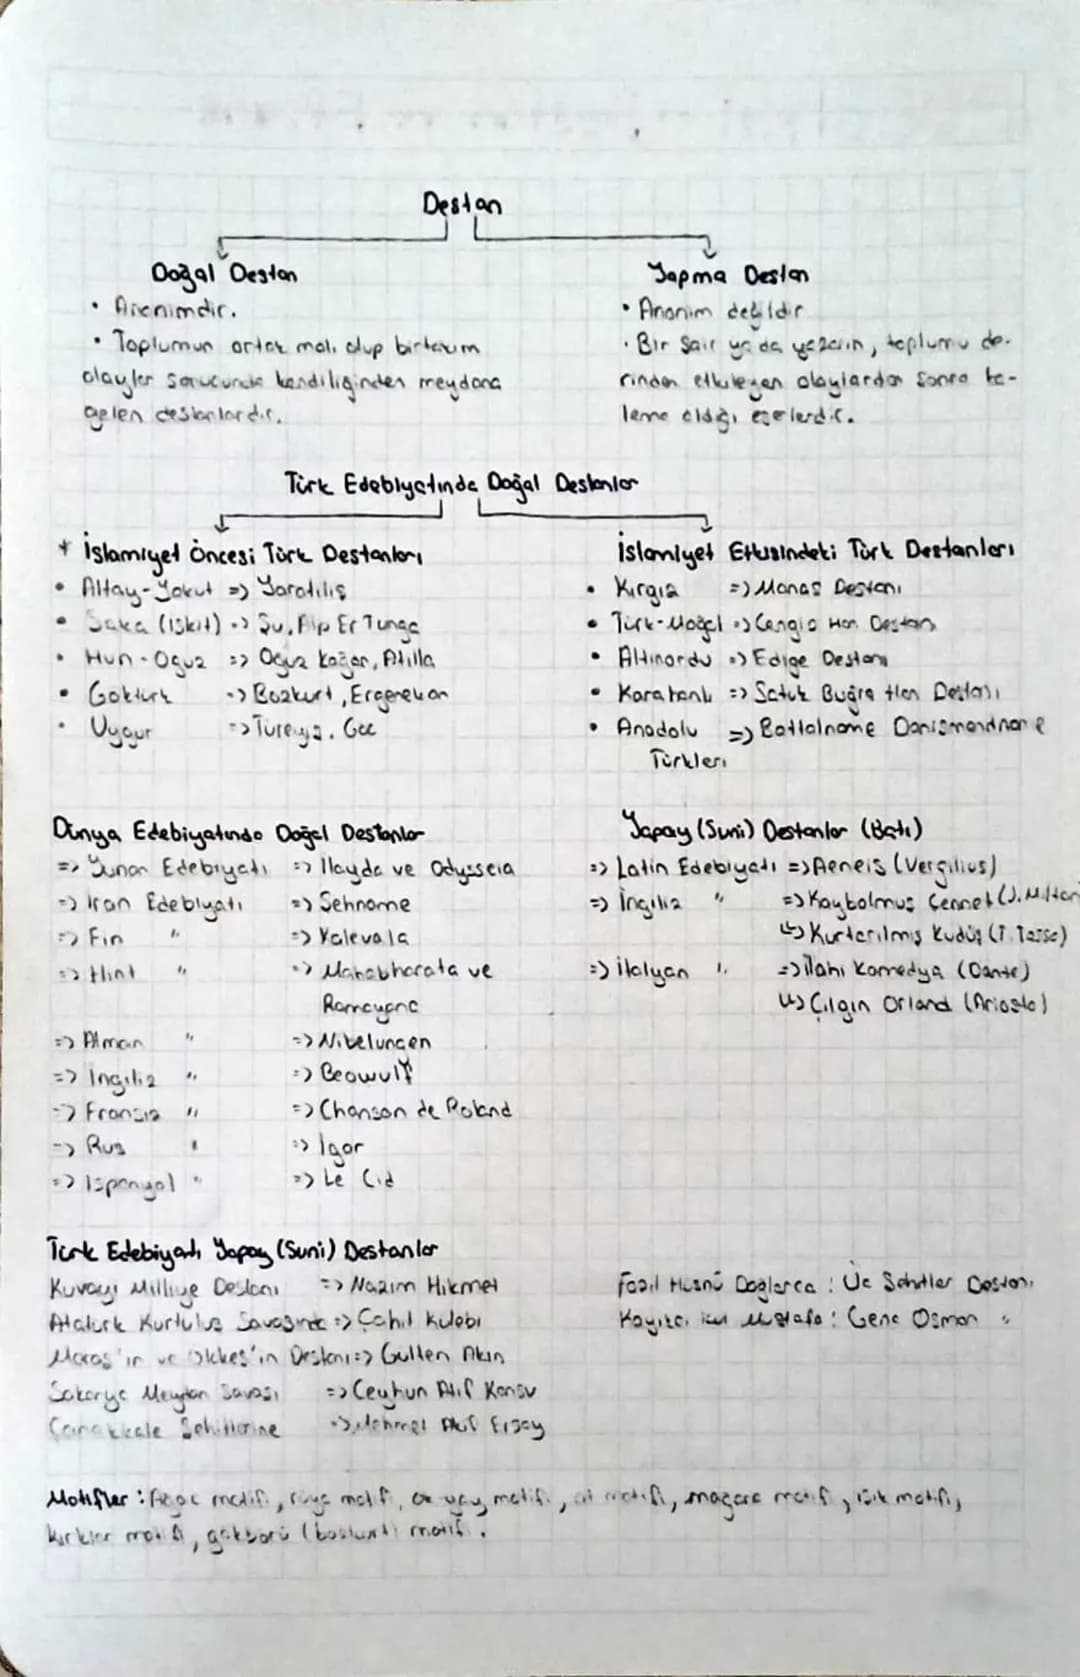 Destan
Doğal Destan
• Anonimdir.
• Toplumun ortak malı olup birtakım
olaylar sonucunda kendiliğinden meydana
gelen destanlardır.
Yapma Destan
• Anonim değildir
• Bir şair ya da yazarın, toplumu de-
rinden etkileyen olaylardan sonra ka-
leme aldığı eserlerdir.
Türk Edebiyatında Doğal Destanlar
* İslamiyet Öncesi Türk Destanları
• Altay-Yakut => Yaratılış
• Saka (İskit) => Şu, Alp Er Tunga
• Hun-Oğuz => Oğuz Kağan, Atilla
• Göktürk => Bozkurt, Ergenekon
• Uygur => Türeyiş, Göç
İslamiyet Etkisindeki Türk Destanları
• Kırgız => Manas Destanı
• Türk-Moğol => Cengiz Han Destanı
• Altınordu => Edige Destanı
• Karahanlı => Satuk Buğra Han Destanı
• Anadolu => Battalname Danişmendname
Türkleri
Dünya Edebiyatında Doğal Destanlar
=> Yunan Edebiyatı => İlayda ve Odysseia
=> İran Edebiyatı => Şehname
=> Fin " => Kalevala
=> Hint " => Mahabharata ve
Ramayana
=> Alman " => Nibelungen
=> İngiliz " => Beowulf
=> Fransız " => Chanson de Roland
=> Rus " => İgor
=> İspanyol " => Le Cid
Yapay (Suni) Destanlar (Batı)
=> Latin Edebiyatı => Aeneis (Vergilius)
=> İngiliz " => Kaybolmuş Cennet (J. Milton)
↳ Kurtarılmış Kudüs (T. Tasso)
=> İtalyan " => İlahi Komedya (Dante)
↳ Çılgın Orland (Ariosto)
Türk Edebiyatı Yapay (Suni) Destanlar
Kuvayi Milliye Destanı => Nazım Hikmet
Atatürk Kurtuluş Savaşında => Cahit Külebi
Maraş'ın ve Ökkeş'in Destanı => Gülten Akın
Sakarya Meydan Savaşı => Ceyhun Atıf Kansu
Çanakkale Şehitlerine => Mehmet Akif Ersoy
Fazıl Hüsnü Dağlarca : Üç Şehitler Destanı
Kayıkçı Kul Mustafa : Genç Osman "
Motifler : Ağaç motifi, rüya motifi, ok yay motifi, at motifi, mağara motifi, ışık motifi,
kırklar motifi, gökbörü (bozkurt) motifi.